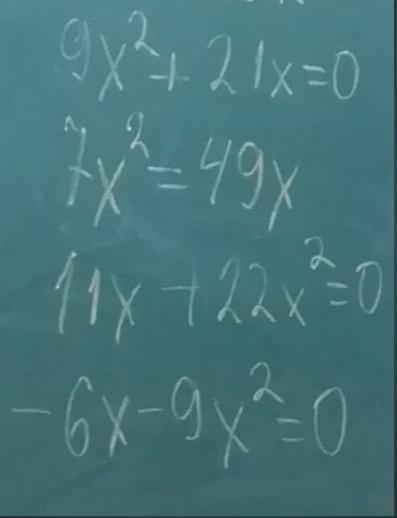 9x²+21x=0
7x²=49x
11x+22x²=0
-6x-9x²=0